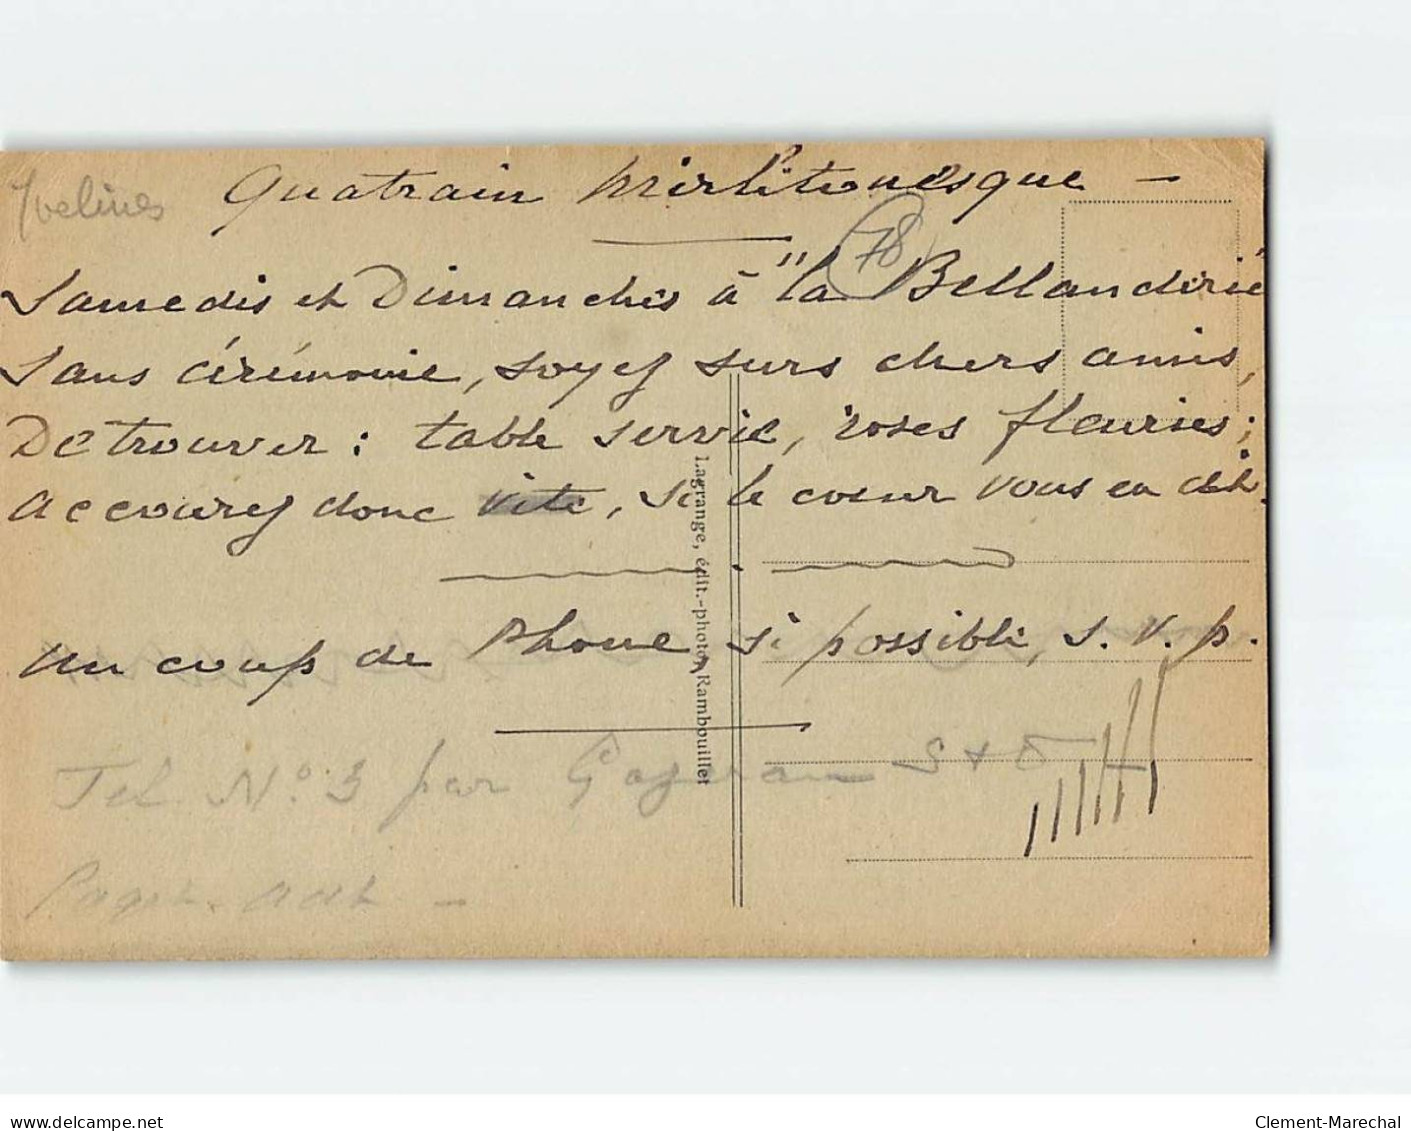 Yvelines
Quatrain mirlitonesque —
78
Samedis et Dimanches à "la Bellanderie"
Sans cérémonie, soyez surs chers amis,
De trouver : table servie, roses fleuries ;
Accourez donc vite, si le cœur vous en dit.
Un coup de Phone si possible, S. V. p.
Tel. N° 3 par Gazeran S + O
Lagrange, édit.-photo, Rambouillet
www.delcampe.net
Clement-Marechal